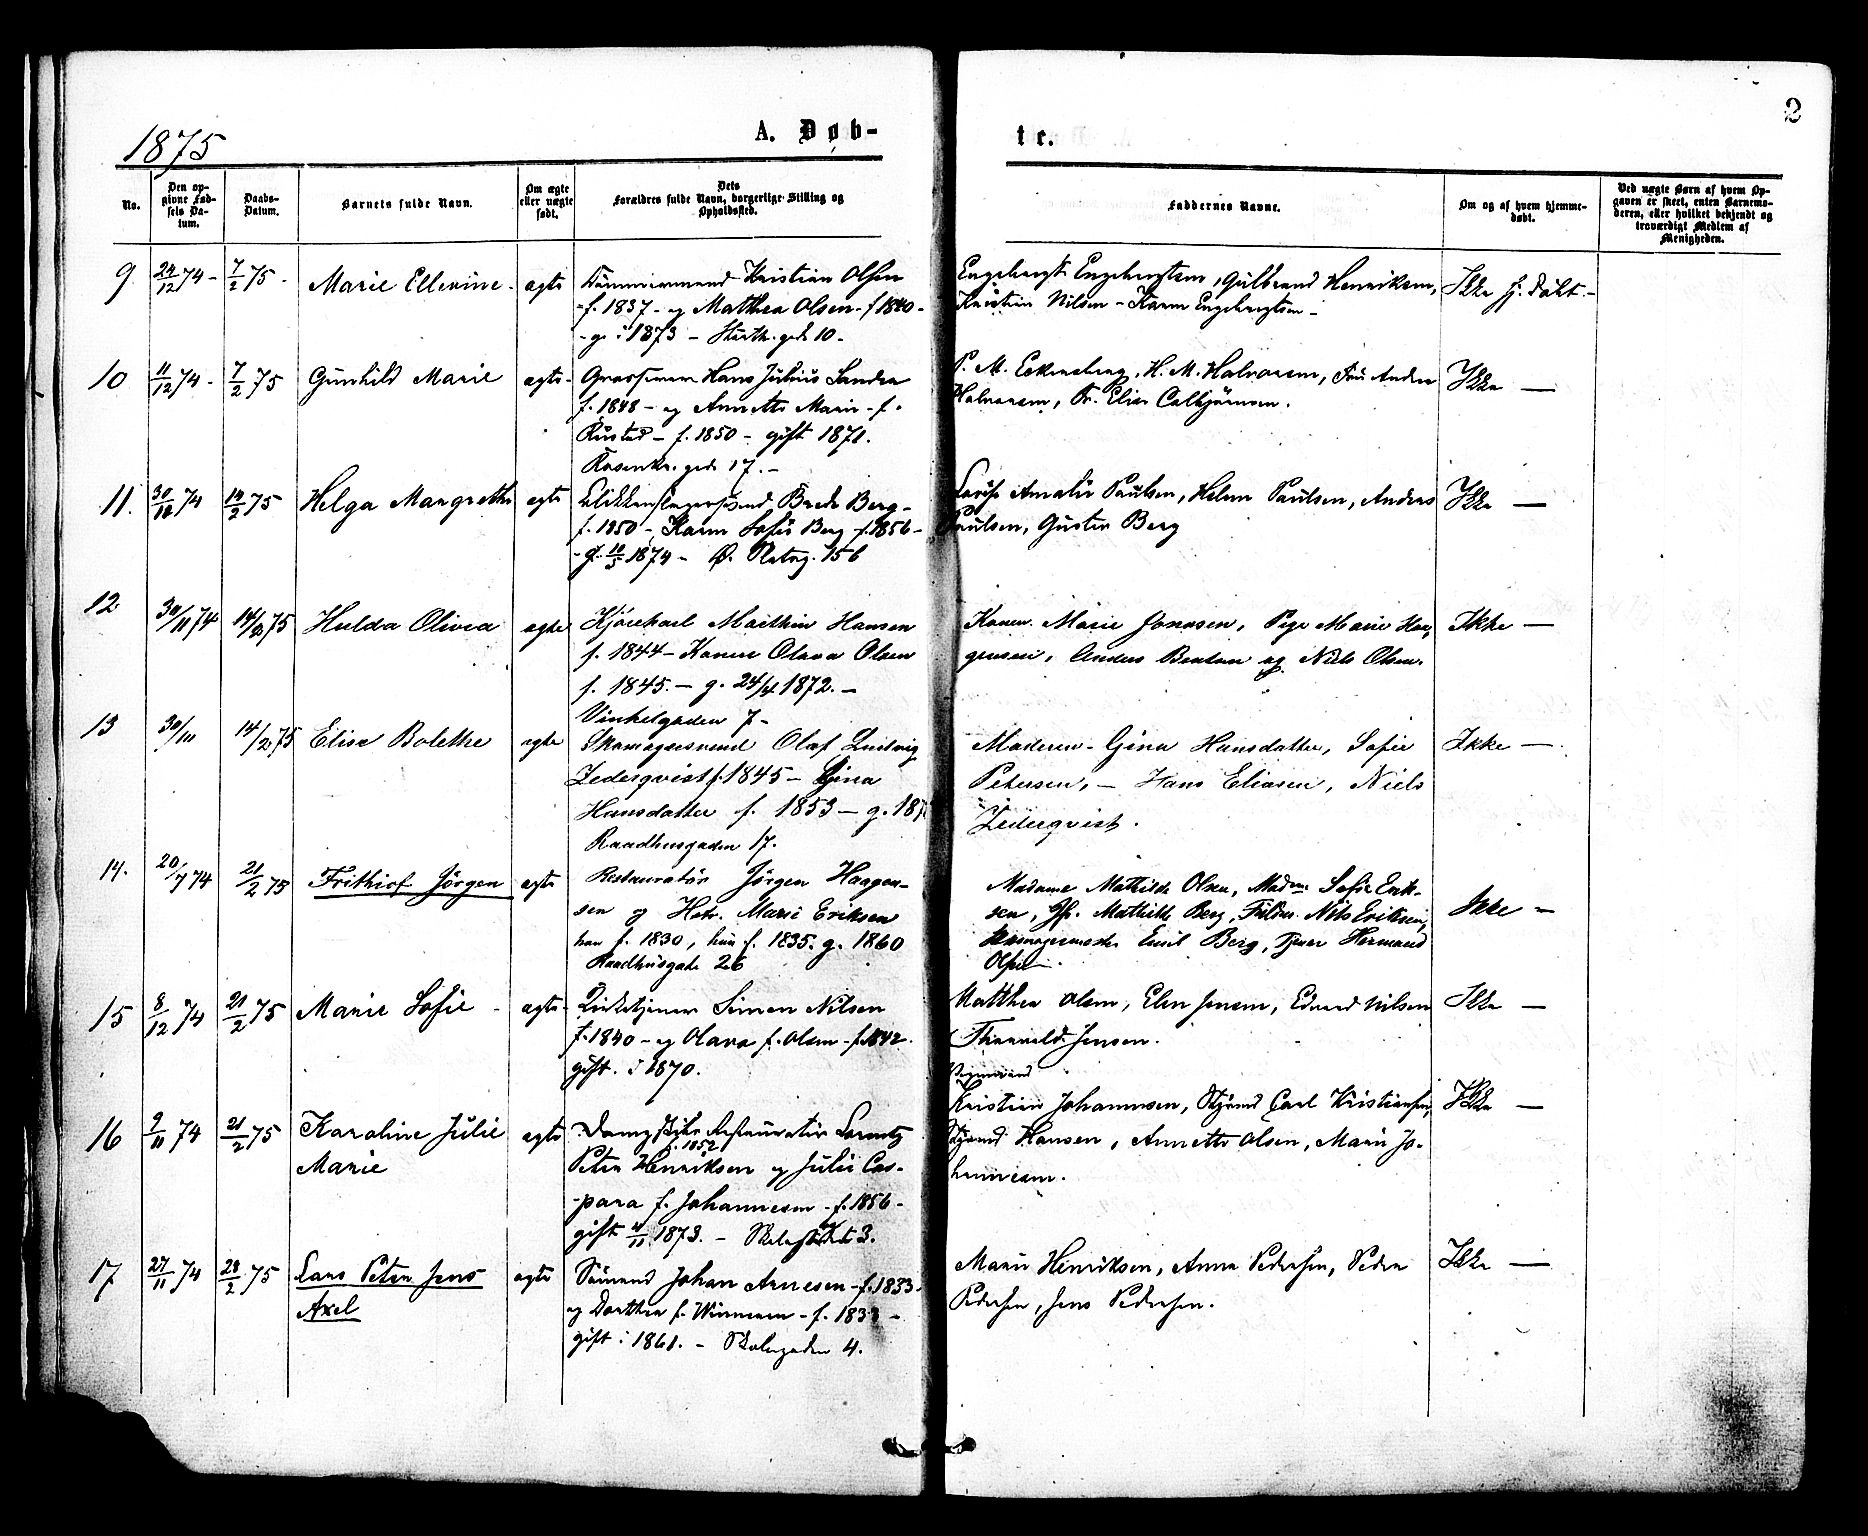 1875
A. Døb-
te.
2
No.
Den op-
givne Fød-
sels Da-
tum.
Daabs-
Datum.
Barnets fulde Navn.
Om ægte
eller uægte
født.
Dets
Forældres fulde Navn, borgerlige Stilling og
Opholdssted.
Faddernes Navne.
Om og af hvem hjemme-
døbt.
Ved uægte Børn af hvem Op-
gaven er skeet, enten Barnemo-
deren, eller hvilket bekjendt og
troværdigt Medlem af
Menigheden.
9 24/12 74 - 7/2 75 - Marie Ellevine - ægte Tømmermand Kristian Olsen
f. 1837 - og Mathea Olsen - f 1840 -
- g. i 1873 - gade 10 -
Engebregt Engebregtsen, Gulbrand Henriksen,
Kristin Nilsen - Karen Engebregtsen -
Ikke hj. døbt. -
10 11/12 74 - 7/2 75 Gunhild Marie ægte - Hans Julius
f. 1848 - og Annette Marie - f.
Rustad - f. 1850 - gift 1871.
Rosenkr. gade 17. -
P. M. H. M. Halvorsen, Andrea
Halvorsen, Fr. Elise
Ikke —
11. 30/10 74 14/2 75 Helga Margrethe ægte Blikkenslagersvend Brede Berg -
f. 1850 -, Karen Sofie Berg - f. 1856 -
- g. 1874 - Ø. 156
Lovise Amalie Paulsen, Helene Paulsen, Anders
Paulsen, Gustav Berg
Ikke —
12 30/11 74 14/2 75 Hulda Olivia ægte Kjørekarl Marthin Hansen
f. 1844 - Konen Olava Olsen
f. 1845. — g. 24/4 1872. —
Vinkelgaden 7 -
Konen Marie Jonassen, Pige Marie
Anders og Niels Olsen.
Ikke —
13 30/11 14/2 75 Elise Bolethe ægte Skomagersvend Olaf Ludvig
Zederqvist f. 1845 — Gina
Hansdatter f. 1853 — g. 187
Raadhusgaden 17.
Moderen - Gina Hansdatter, Sofie
Petersen, — Hans Eliasen, Niels
Zederqvist.
Ikke —
14. 20/7 74 21/2 75 Frithiof Jörgen ægte Restauratør Jörgen Haagen-
sen og Marie Eriksen
han f. 1830, hun f. 1835. g. 1860
Raadhusgade 26
Madame Mathilde Olsen, Sofie Erik-
sen, Mathilde Berg, Nils Eriksen,
Emil Berg, Tjener Hermand
Olsen.
Ikke -
15 8/12 74 21/2 75 Marie Sofie - ægte - Simen Nilsen
f. 1840 - og Olava f. Olsen - f. 1842.
gift. i 1870.
Matthea Olsen, Elen Jensen, Edvard Nilsen
Thorvald Jensen.
Ikke —
16 9/11 74 21/2 75 Karoline Julie
Marie
ægte Dampskibs Restauratør Lorentz
f. 1852
Peter Henriksen og Julie Cas-
para f. Johannesen - f. 1856 -
gift 1873. -
Kristian Johannesen, Carl Kristiansen,
Hansen, Annette Olsen, Marie Jo-
hannesen.
Ikke —
17 27/11 74 28/2 75 Lars Peter Jens
Axel
ægte Sømand Johan Arnesen - f. 1833 -
og Dorthea f. - f. 1833 -
gift i 1861. - Skolegaden 4.
Marie Henriksen, Anna Pedersen, Peder
Pedersen, Jens Pedersen.
Ikke —